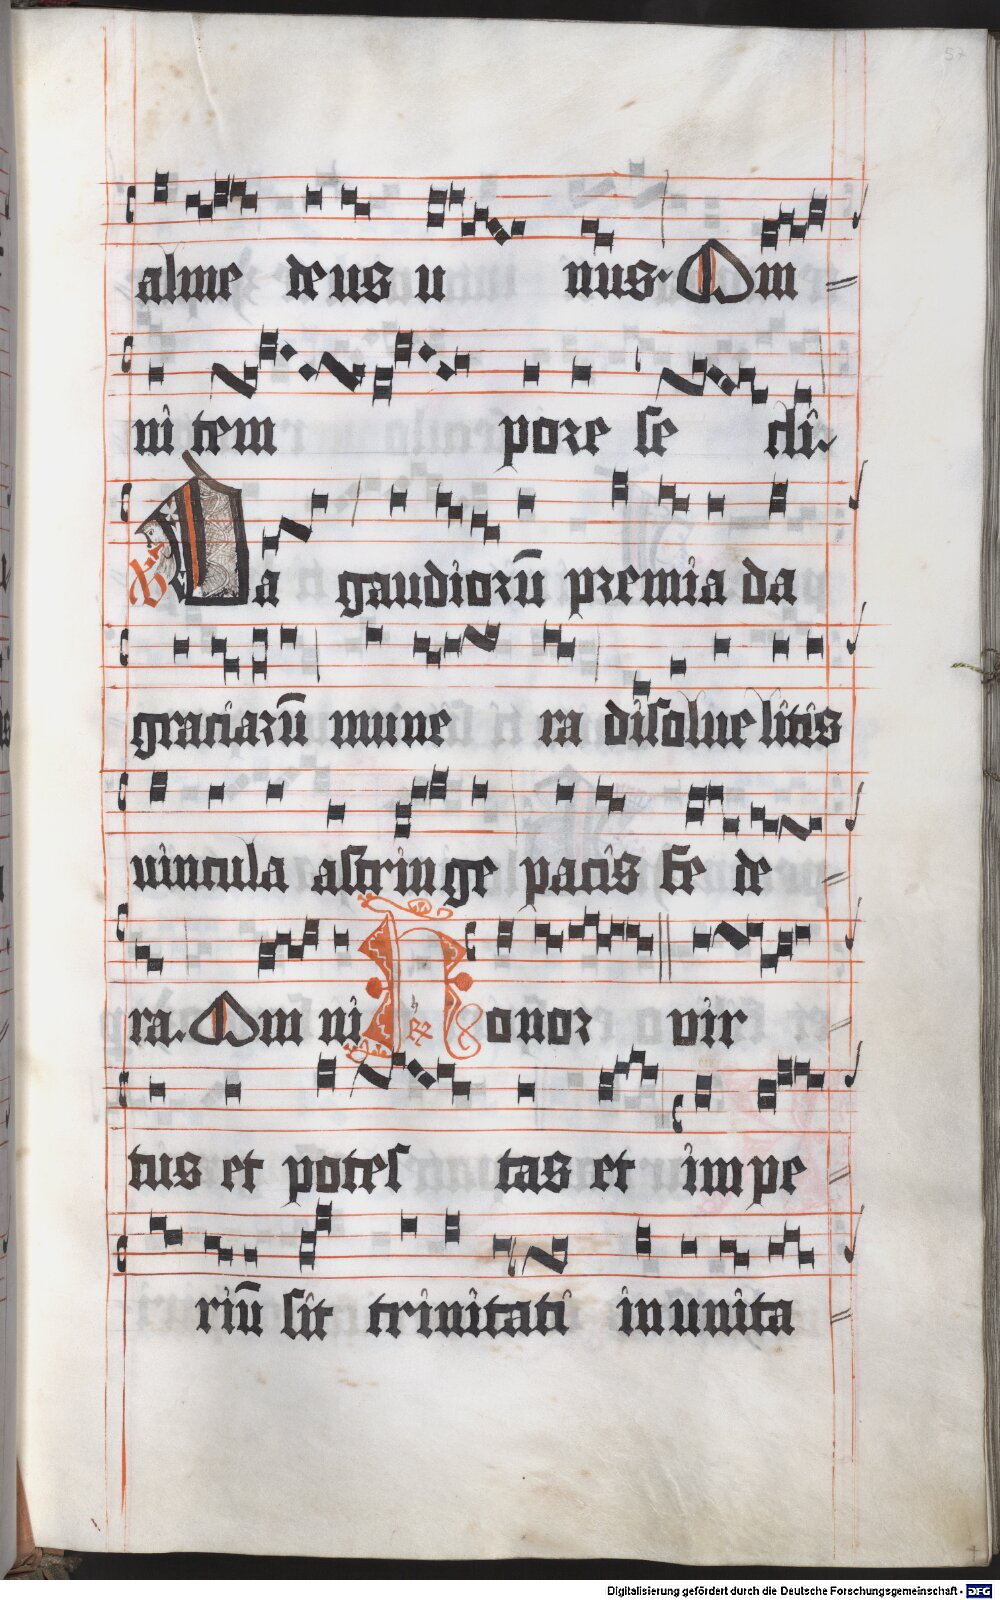 57
alme deus u nus. Om=
ni tem pore se cli.
V Da gaudiorū premia da
graciarū mune ra disolue litis
uincula astringe pacis fe de=
ra. Om ni R h Honor vir
tus et potes tas et impe=
riū sit trinitati in unita=
Digitalisierung gefördert durch die Deutsche Forschungsgemeinschaft - DFG